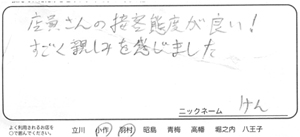 店員さんの接客態度が良い!
すごく親しみを感じました
ニックネーム けん
よく利用されるお店を
○で囲んでください 立川 小作 羽村 昭島 青梅 高幡 堀之内 八王子